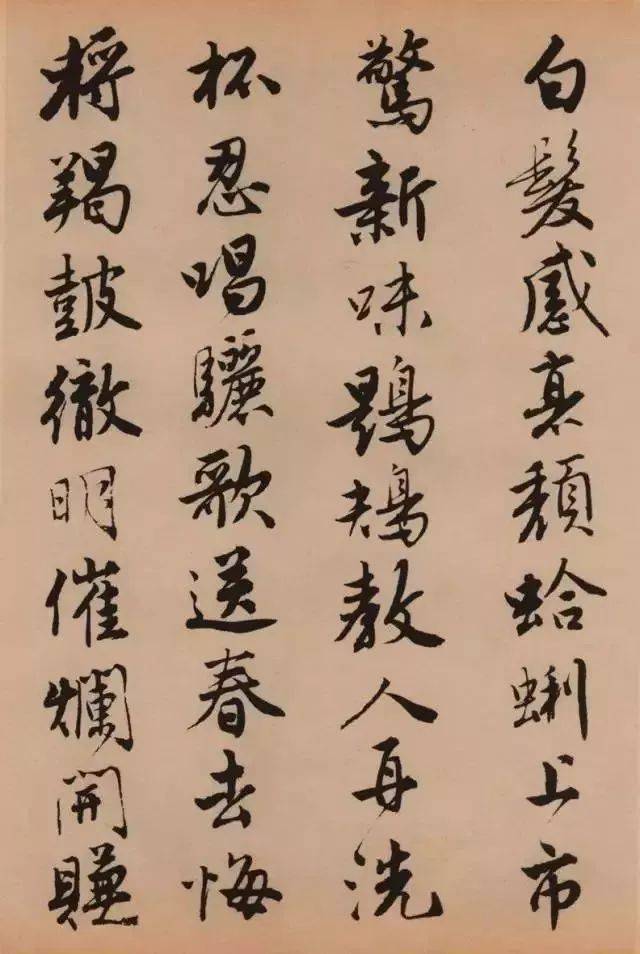 白髮感衰頹蛤蜊上市
驚新味鶗鴂教人再洗
杯忍唱驪歌送春去悔
將羯鼓徹明催爛開賺